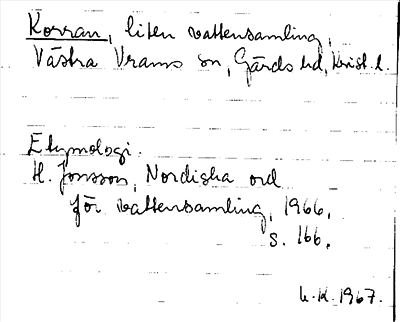 Korran, liten vattensamling,
Västra Vrams sn, Gärds hd, Krist. l.
Etymologi.
H. Jonsson, Nordiska ord
för vattensamling, 1966,
s. 166.
1967.